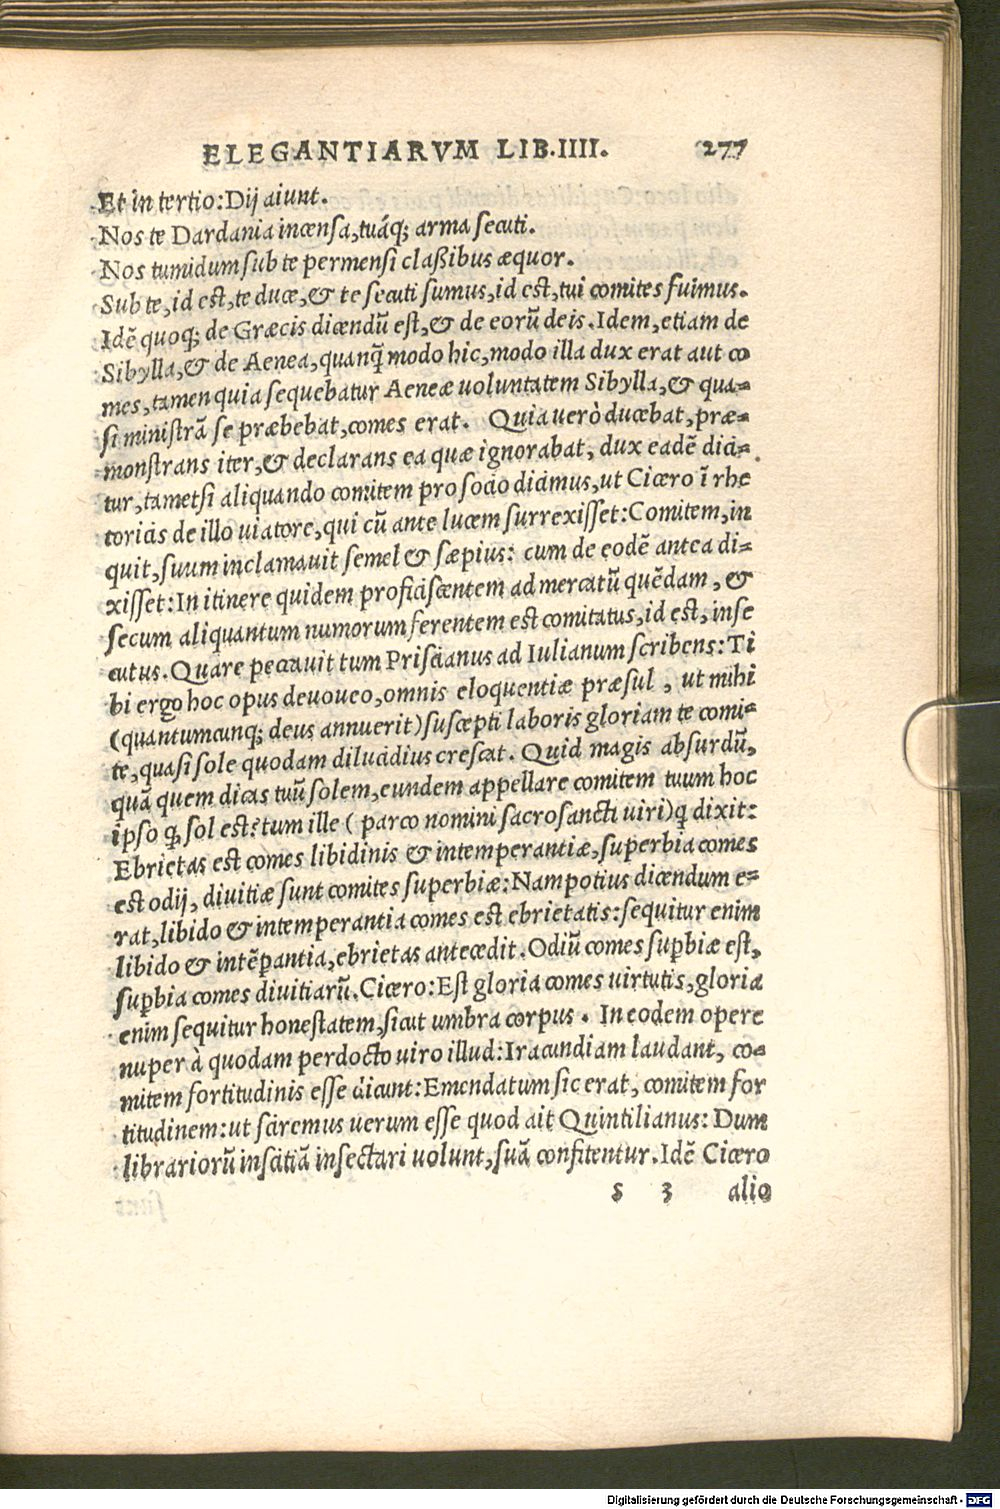 ELEGANTIARVM LIB.IIII. 277
Et in tertio: Dij aiunt.
Nos te Dardania incensa, tuáq; arma secuti.
Nos tumidum sub te permensi claßibus æquor.
Sub te, id est, te duce, & te secuti sumus, id est, tui comites fuimus.
Idẽ quoq; de Græcis dicendũ est, & de eorũ deis. Idem, etiam de
Sibylla, & de Aenea, quanq̃ modo hic, modo illa dux erat aut co
mes, tamen quia sequebatur Aeneæ uoluntatem Sibylla, & qua=
si ministrã se præbebat, comes erat. Quia uerò ducebat, præ=
monstrans iter, & declarans ea quæ ignorabat, dux eadẽ dici=
tur, tametsi aliquando comitem pro socio dicimus, ut Cicero ĩ rhe
toricis de illo uiatore, qui cũ ante lucem surrexisset: Comitem, in
quit, suum inclamauit semel & sæpius: cum de eodẽ antea di=
xisset: In itinere quidem proficiscentem ad mercatũ quẽdam, &
secum aliquantum numorum ferentem est comitatus, id est, inse
cutus. Quare peccauit tum Priscianus ad Iulianum scribens: Ti
bi ergo hoc opus deuoueo, omnis eloquentiæ præsul, ut mihi
(quantumcunq; deus annuerit) suscepti laboris gloriam te comi=
te, quasi sole quodam dilucidius crescat. Quid magis absurdũ,
quã quem dicas tuũ solem, eundem appellare comitem tuum hoc
ipso ꝙ sol est? tum ille (parco nomini sacrosancti uiri) q̃ dixit:
Ebrietas est comes libidinis & intemperantiæ, superbia comes
est odij, diuitiæ sunt comites superbiæ: Nam potius dicendum e=
rat, libido & intemperantia comes est ebrietatis: sequitur enim
libido & intẽꝑantia, ebrietas antecedit. Odiũ comes suꝑbiæ est,
suꝑbia comes diuitiarũ. Cicero: Est gloria comes uirtutis, gloria
enim sequitur honestatem, sicut umbra corpus. In eodem opere
nuper à quodam perdocto uiro illud: Iracundiam laudant, co=
mitem fortitudinis esse dicunt: Emendatum sic erat, comitem for
titudinem: ut sciremus uerum esse quod ait Quintilianus: Dum
librariorũ inscitiã insectari uolunt, suã confitentur. Idẽ Cicero
s 3 alio
Digitalisierung gefördert durch die Deutsche Forschungsgemeinschaft - DFG